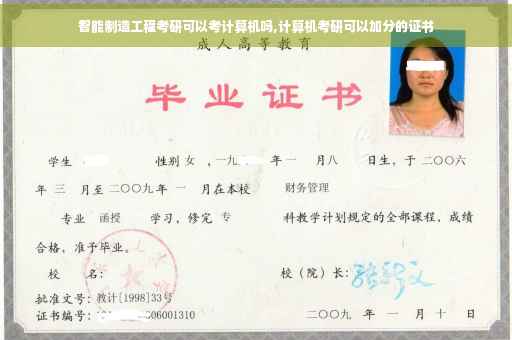 智能制造工程考研可以考计算机吗,计算机考研可以加分的证书
成人高等教育
毕业证书
学生 性别 女 ，一九 年一 月八 日生，于二〇〇六
年 三 月至二〇〇九年 一 月在本校 财务管理
专业 函授 学习，修完 专 科教学计划规定的全部课程，成绩
合格，准予毕业。
校 名： 校（院）长：
批准文号：教计[1998]33号
证书编号： 06001310 二〇〇九 年 一 月 十 日